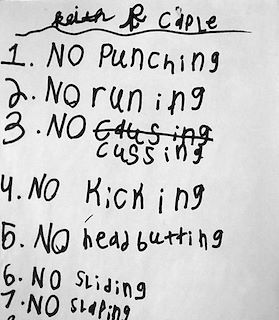 Keith R Caple
1. NO Punching
2. NO runing
3. NO Causing
cussing
4. NO Kicking
5. NO headbutting
6. NO sliding
7. NO slaping